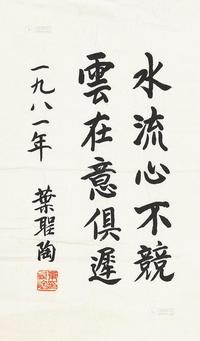 水流心不競
雲在意俱遲
一九八一年
葉聖陶